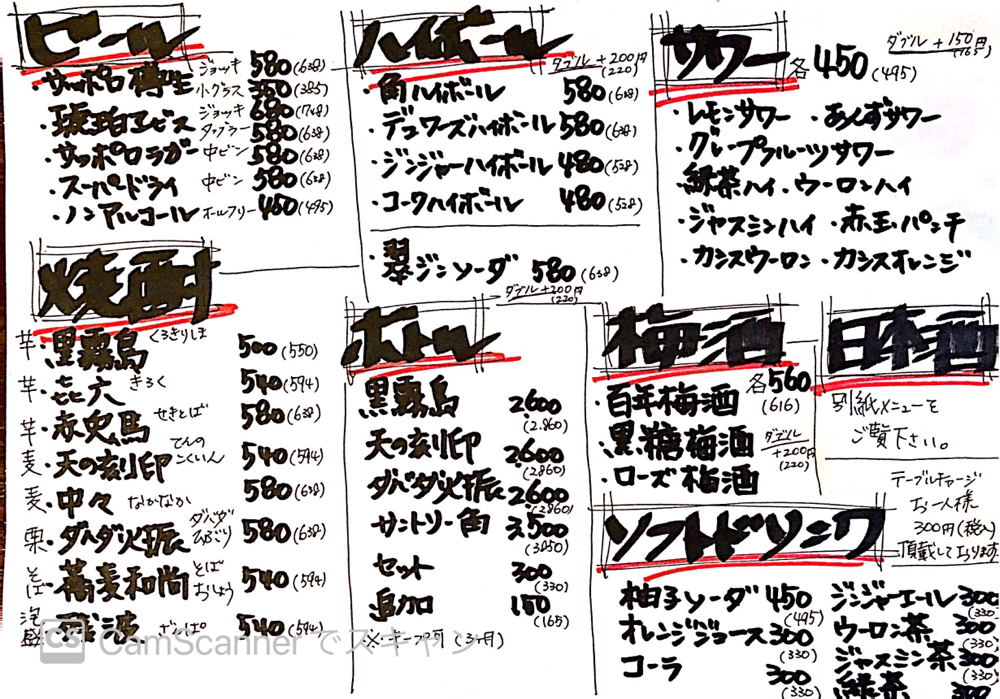 ビール
・サッポロ樽生 ジョッキ 580(638)
小グラス 350(385)
・琥珀ヱビス ジョッキ 680(748)
タンブラー 580(638)
・サッポロラガー 中ビン 580(638)
・スーパードライ 中ビン 580(638)
・ノンアルコール オールフリー 450(495)
ハイボール
ダブル +200円
(220)
・角ハイボール 580(638)
・デュワーズハイボール 580(638)
・ジンジャーハイボール 480(528)
・コークハイボール 480(528)
・翠ジンソーダ 580(638)
ダブル+200円
(220)
サワー 各450(495)
ダブル +150円
(165)
・レモンサワー ・あんずサワー
・グレープフルーツサワー
・緑茶ハイ ・ウーロンハイ
・ジャスミンハイ ・赤玉パンチ
・カシスウーロン ・カシスオレンジ
焼酎
芋 ・黒霧島 くろきりしま 500(550)
芋 ・㐂六 きろく 540(594)
芋 ・赤兎馬 せきとば 580(638)
麦 ・天の刻印 てんのこくいん 540(594)
麦 ・中々 なかなか 580(638)
栗 ・ダバダ火振 ダバダひぶり 580(638)
そば ・蕎麦和尚 そばおしょう 540(594)
泡盛 ・残波 ざんぱ 540(594)
ボトル
黒霧島 2600
(2.860)
天の刻印 2600
(2860)
ダバダ火振 2600
(2860)
サントリー角 3,500
(3850)
セット 300
(330)
追加 150
(165)
※キープ可(3ヶ月)
梅酒
各560
(616)
・百年梅酒
・黒糖梅酒
・ローズ梅酒
ダブル
+200円
(220)
日本酒
別紙メニューを
ご覧下さい。
テーブルチャージ
お一人様
300円(税込)
頂戴しております
ソフトドリンク
柚子ソーダ 450
(495)
オレンジジュース 300
(330)
コーラ 300
(330)
ジンジャーエール 300
(330)
ウーロン茶 300
(330)
ジャスミン茶 300
(330)
緑茶 300
CS CamScanner でスキャン